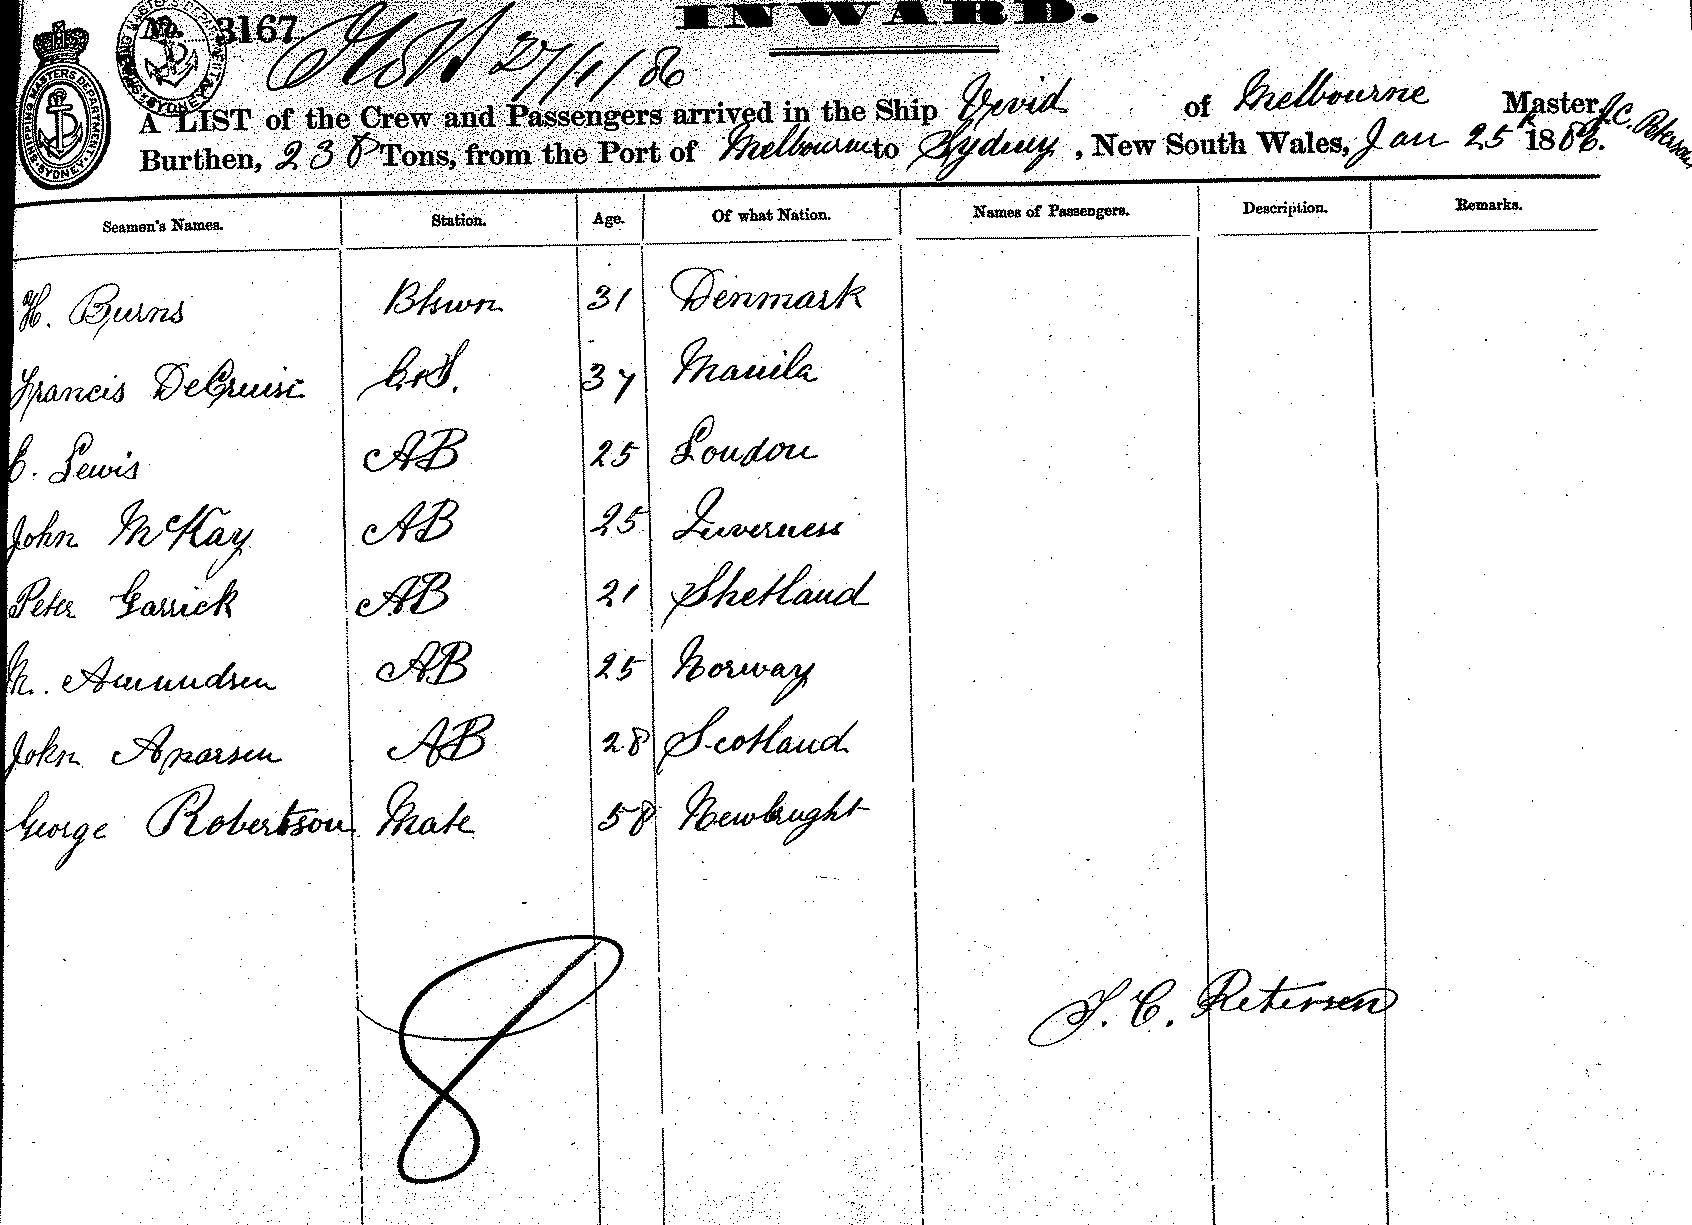 INWARD.
No. 3167
27/1/86
A LIST of the Crew and Passengers arrived in the Ship Vivid of Melbourne Master, J.C. Petersen
Burthen, 238 Tons, from the Port of Melbourne to Sydney, New South Wales, Jan 25th 1886.
Seamen's Names. Station. Age. Of what Nation. Names of Passengers. Description. Remarks.
H. Burns 31 Denmark
Francis DeCruise 37 Manila
C. Lewis AB 25 London
John McKay AB 25 Inverness
Peter Garrick AB 21 Shetland
M. Amundsen AB 25 Norway
John AB 28 Scotland
George Robertson Mate 58
8
J. C. Petersen